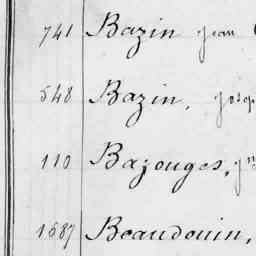 741 Bazin Jean
548 Bazin, Josep
110 Bazouges, Jn
1587 Beaudouin,